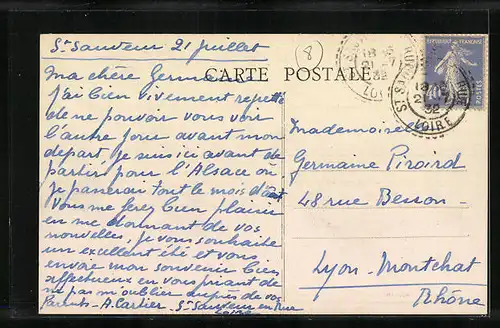 St Sauveur 21 juillet
8
CARTE POSTALE
REPUBLIQUE FRANÇAISE
POSTES
ST SAUVEUR EN RUE
LOIRE
Ma chère Germaine
j'ai bien vivement regretté
de ne pouvoir vous voir
l'autre jour avant mon
départ, je suis ici avant de
partir pour l'Alsace où
je passerai tout le mois d'août
Vous me ferez bien plaisir
en me donnant de vos
nouvelles. je vous souhaite
un excellent été et vous
envoie mon souvenir bien
affectueux en vous priant de
ne pas m'oublier auprès de vos
Parents - A. Cartier - St Sauveur en Rue
Loire
Mademoiselle
Germaine Pirard
48 rue Besson -
Lyon - Montchat
Rhône